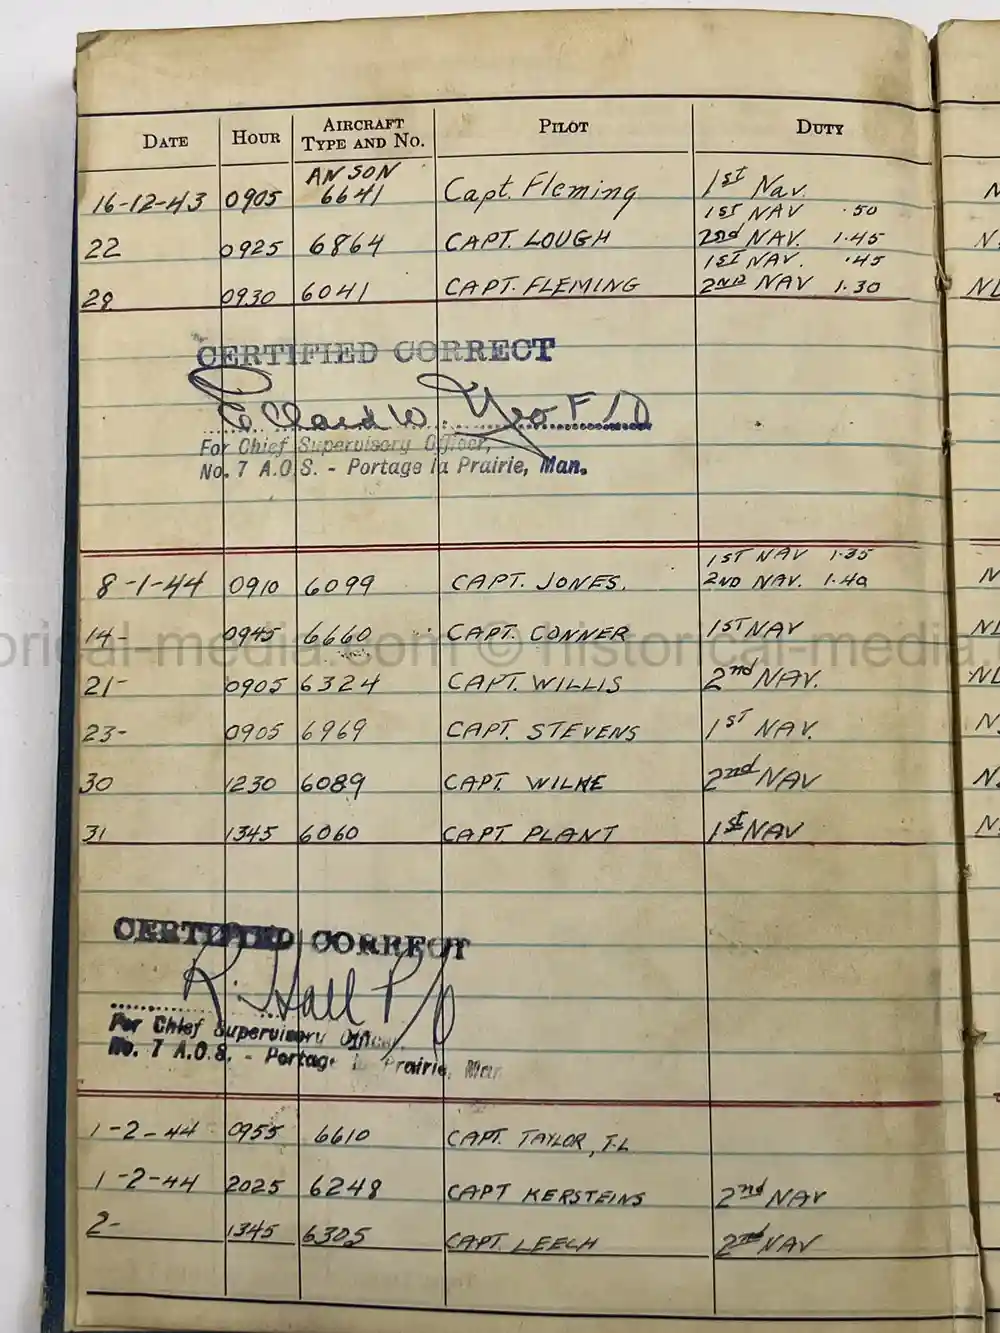 DATE HOUR AIRCRAFT TYPE AND NO. PILOT DUTY
ANSON
16-12-43 0905 6641 Capt. Fleming 1st Nav.
1ST NAV .50
22 0925 6864 CAPT. LOUGH 2nd NAV. 1.45
1ST NAV. .45
28 0930 6041 CAPT. FLEMING 2ND NAV 1.30
CERTIFIED CORRECT
W.
For Chief Supervisory Officer,
No. 7 A.O.S. - Portage la Prairie, Man.
1ST NAV 1.35
8-1-44 0910 6099 CAPT. JONES. 2ND NAV. 1.40
14- 0945 6660 CAPT. CONNER 1ST NAV
historical-media.com © historical-media
21- 0905 6324 CAPT. WILLIS 2nd NAV.
23- 0905 6969 CAPT. STEVENS 1ST NAV.
30 1230 6089 CAPT. WILNE 2nd NAV
31 1345 6060 CAPT PLANT 1st NAV
CERTIFIED CORRECT
R. Hall P/O
For Chief Supervisory Officer,
No. 7 A.O.S. - Portage la Prairie, Man
1-2-44 0955 6610 CAPT. TAYLOR, T.L
1-2-44 2025 6248 CAPT KERSTEINS 2nd NAV
2- 1345 6305 CAPT. LEECH 2nd NAV